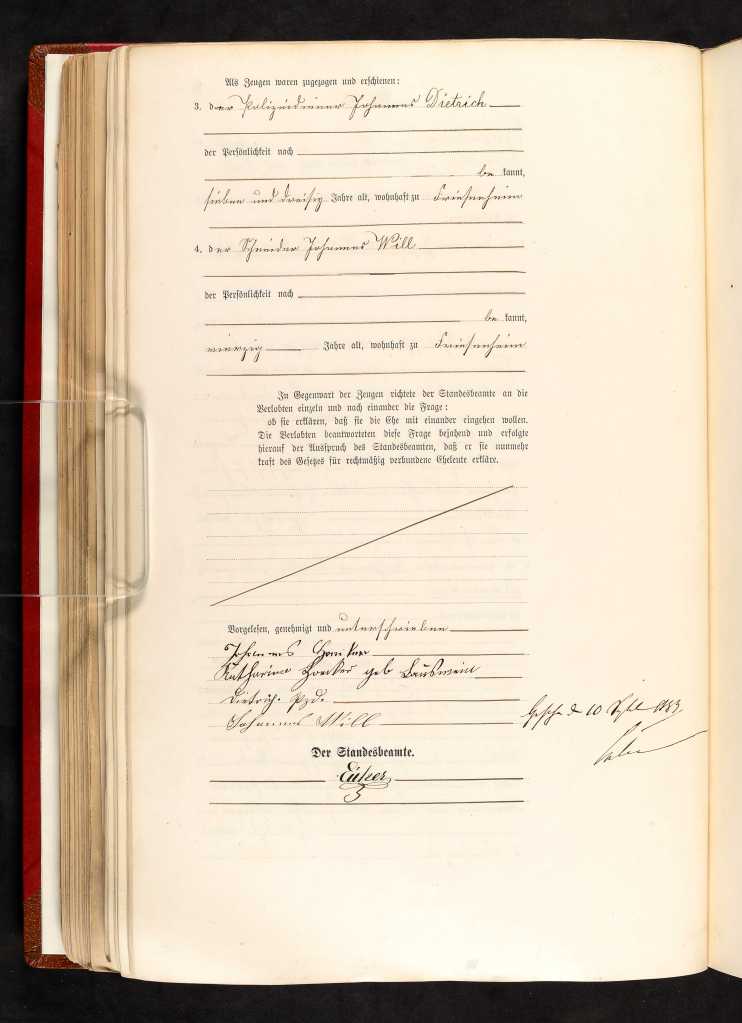 Als Zeugen waren zugezogen und erschienen:
3. der Polizeidiener Johannes Dietrich
der Persönlichkeit nach
be kannt,
sieben und dreisig Jahre alt, wohnhaft zu Friesenheim
4. der Schneider Johannes Will
der Persönlichkeit nach
be kannt,
vierzig Jahre alt, wohnhaft zu Friesenheim
In Gegenwart der Zeugen richtete der Standesbeamte an die
Verlobten einzeln und nach einander die Frage:
ob sie erklären, daß sie die Ehe mit einander eingehen wollen.
Die Verlobten beantworteten diese Frage bejahend und erfolgte
hierauf der Ausspruch des Standesbeamten, daß er sie nunmehr
kraft des Gesetzes für rechtmäßig verbundene Eheleute erkläre.
Vorgelesen, genehmigt und unterschrieben
Johannes
Katharina geb
Dietrich. Pzd.
Johannes Will
10 1883
Der Standesbeamte.